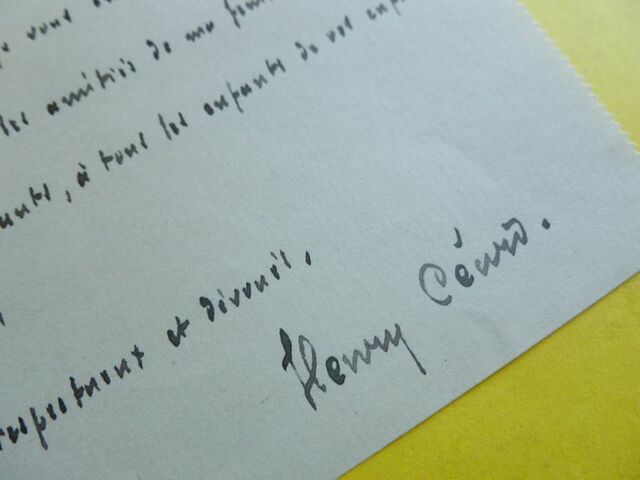 vous
les amitiés de ma fem
à tous les enfants de vos enf
respectueux et dévoué.
Henry Céard.